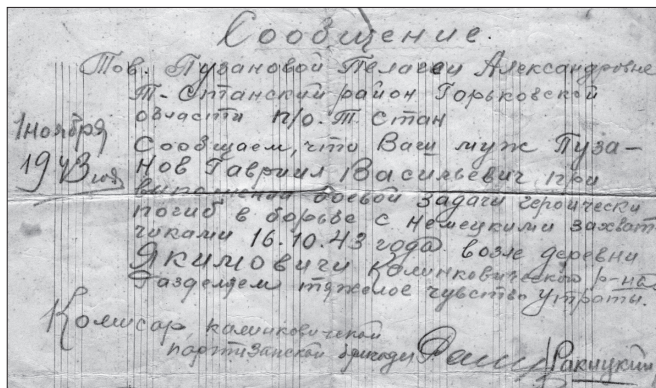 Сообщение.
Тов. Пузановой Пелагеи Александровне
Т-Станский район Горьковской
области п/о. Т Стан
1 ноября
1943 года
Сообщаем, что Ваш муж Пуза-
нов Гавриил Васильевич при
выполнении боевой задачи героически
погиб в борьбе с немецкими захват
чиками 16.10.43 года возле деревни
Якимовичи Калинковического р-на
Разделяем тяжелое чувство утраты.
Комисар калинковической
партизанской бригады Ракицкий